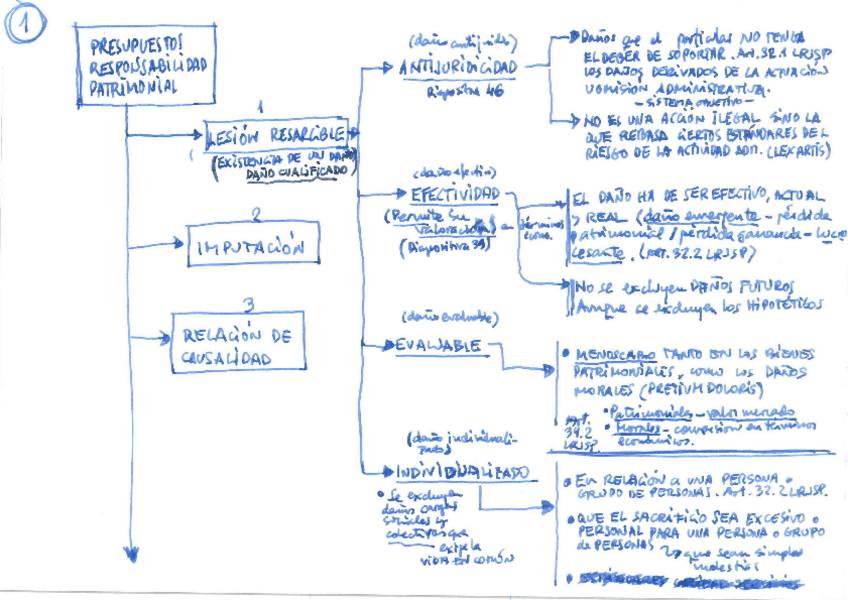 1
PRESUPUESTOS
RESPONSABILIDAD
PATRIMONIAL
1
LESIÓN RESARCIBLE
(EXISTENCIA DE UN DAÑO
DAÑO CUALIFICADO)
2
IMPUTACIÓN
3
RELACIÓN DE
CAUSALIDAD
(daño antijurídico)
ANTIJURIDICIDAD
Diapositiva 46
Daños que el particular NO TENGA
EL DEBER DE SOPORTAR. Art. 32.1 LRJSP
LOS DAÑOS DERIVADOS DE LA ACTUACIÓN
U OMISIÓN ADMINISTRATIVA.
- SISTEMA OBJETIVO -
NO ES UNA ACCIÓN ILEGAL SINO LA
QUE REBASA CIERTOS ESTÁNDARES DEL
RIESGO DE LA ACTIVIDAD ADM. (LEX ARTIS)
(daño efectivo)
EFECTIVIDAD
(Permite su
valoración) en términos
econo.
(Diapositiva 39)
EL DAÑO HA DE SER EFECTIVO, ACTUAL
y REAL (daño emergente - pérdida
patrimonial / pérdida ganancia - lucro
cesante. (ART. 32.2 LRJSP)
No se excluyen DAÑOS FUTUROS
Aunque se excluyen los HIPOTÉTICOS
(daño evaluable)
EVALUABLE
• MENOSCABO TANTO EN LOS BIENES
PATRIMONIALES, COMO LOS DAÑOS
MORALES (PRETIUM DOLORIS)
• Patrimoniales - valor mercado
• Morales - conversión en términos
económicos.
Art.
34.2
LRJSP.
(daño individuali-
zado)
INDIVIDUALIZADO
• Se excluyen
daños cargas
sociales y
colectivas que
exige la
VIDA EN COMÚN
• EN RELACIÓN A UNA PERSONA o
GRUPO DE PERSONAS. Art. 32.2 LRJSP.
• QUE EL SACRIFICIO SEA EXCESIVO o
PERSONAL PARA UNA PERSONA o GRUPO
de PERSONAS
que sean simples
molestias